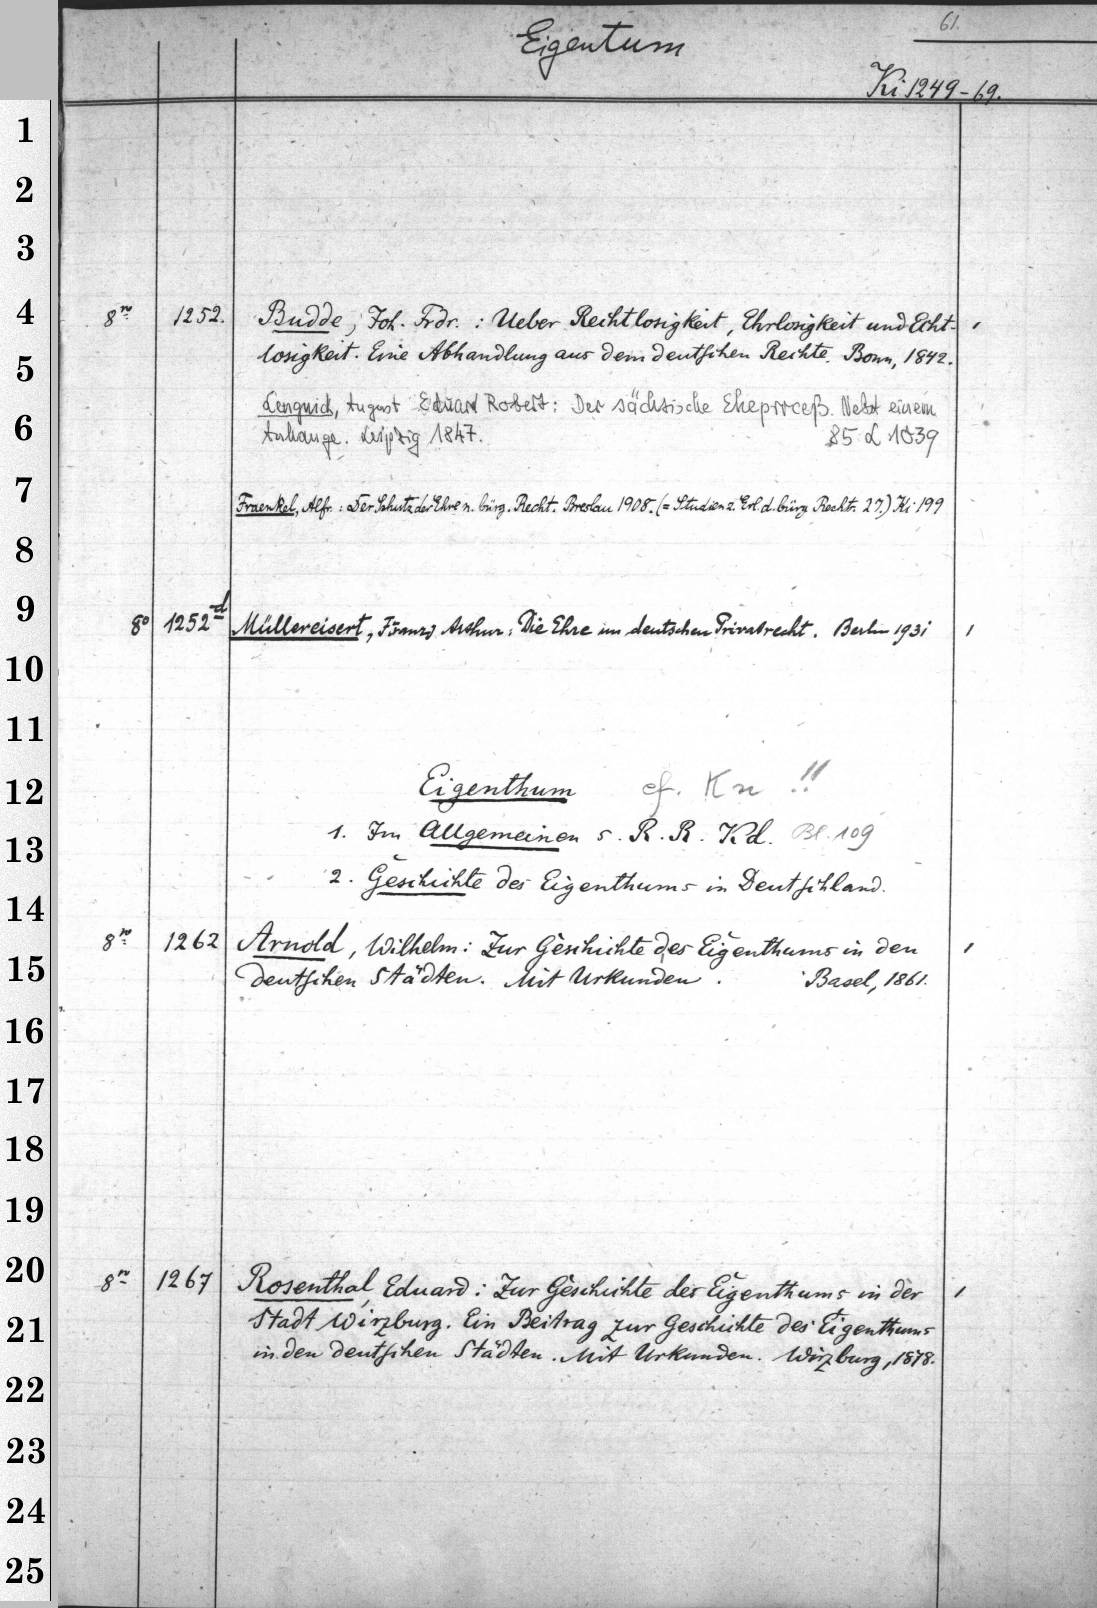 61.
Eigentum
Ki 1249-69.
1
2
3
4
8vo 1252. Budde, Joh. Frdr. : Ueber Rechtlosigkeit, Ehrlosigkeit und Echt-
5
losigkeit. Eine Abhandlung aus dem deutschen Rechte. Bonn, 1842.
6
Lenguich, August Eduard Robert: Der sächsische Eheprceß. Nebst einem
Anhange. Leipzig 1847. 85 L 1039
7
Fraenkel, Alfr. : Der Schutz der Ehre n. bürg. Recht. Breslau 1908. (= Studien z. Erl. d. bürg. Rechts. 27.) Ki 199
8
9
8° 1252d Müllereisert, Franz Arthur: Die Ehre im deutschen Privatrecht. Berlin 1931
10
11
12
Eigenthum cf. Kn !!
13
1. Im Allgemeinen s. R. R. Kd. Bl. 109
14
2. Geschichte des Eigenthums in Deutschland.
8vo 1262 Arnold, Wilhelm: Zur Geschichte des Eigenthums in den
15
deutschen Städten. Mit Urkunden. Basel, 1861.
16
17
18
19
20
8vo 1267 Rosenthal, Eduard: Zur Geschichte des Eigenthums in der
21
Stadt Wirzburg. Ein Beitrag zur Geschichte des Eigenthums
in den deutschen Städten. Mit Urkunden. Wirzburg, 1878.
22
23
24
25